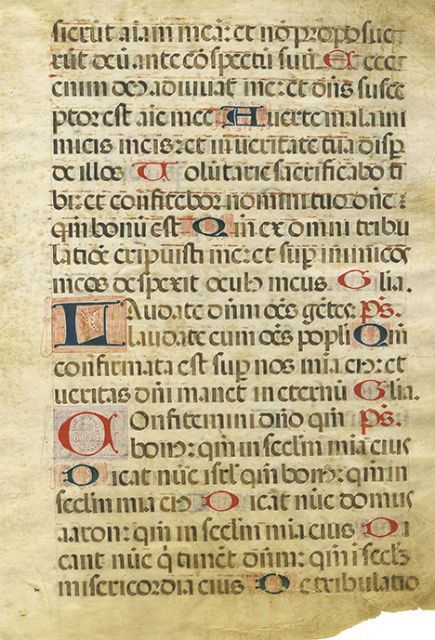 sierut aiam meā: et nō proposue
rūt deū ante cōspectū suū. Ecce
enim deꝰ adiuuat me: et dn̄s susce
ptor est aīe mee Auerte mala ini
micis meis: et in ueritate tua disp̄
de illos Uolūtarie sacrificabo ti
bi: et confitebor nomini tuo dn̄e:
qm̄ bonū est Qm̄ ex omni tribu
latiōe eripuisti me: et sup̄ inimicos
meos despexit oculꝰ meus. Glīa.
Laudate dn̄m oēs gētes: Ps̄.
laudate eum oēs popl̄i Qm̄
confirmata est sup̄ nos mīa eiꝰ: et
ueritas dn̄i manet in eternū Glīa.
Confitemini dn̄o qm̄ Ps̄.
bonꝰ: qm̄ in secl̄m mīa eius
Dicat nūc isrl̄ qm̄ bonꝰ: qm̄ in
secl̄m mīa eiꝰ Dicat nūc domus
aaron: qm̄ in secl̄m mīa eius Di
cant nūc q̇ timēt dn̄m: qm̄ ī secl̄ꝫ
misericordia eius De tribulatio